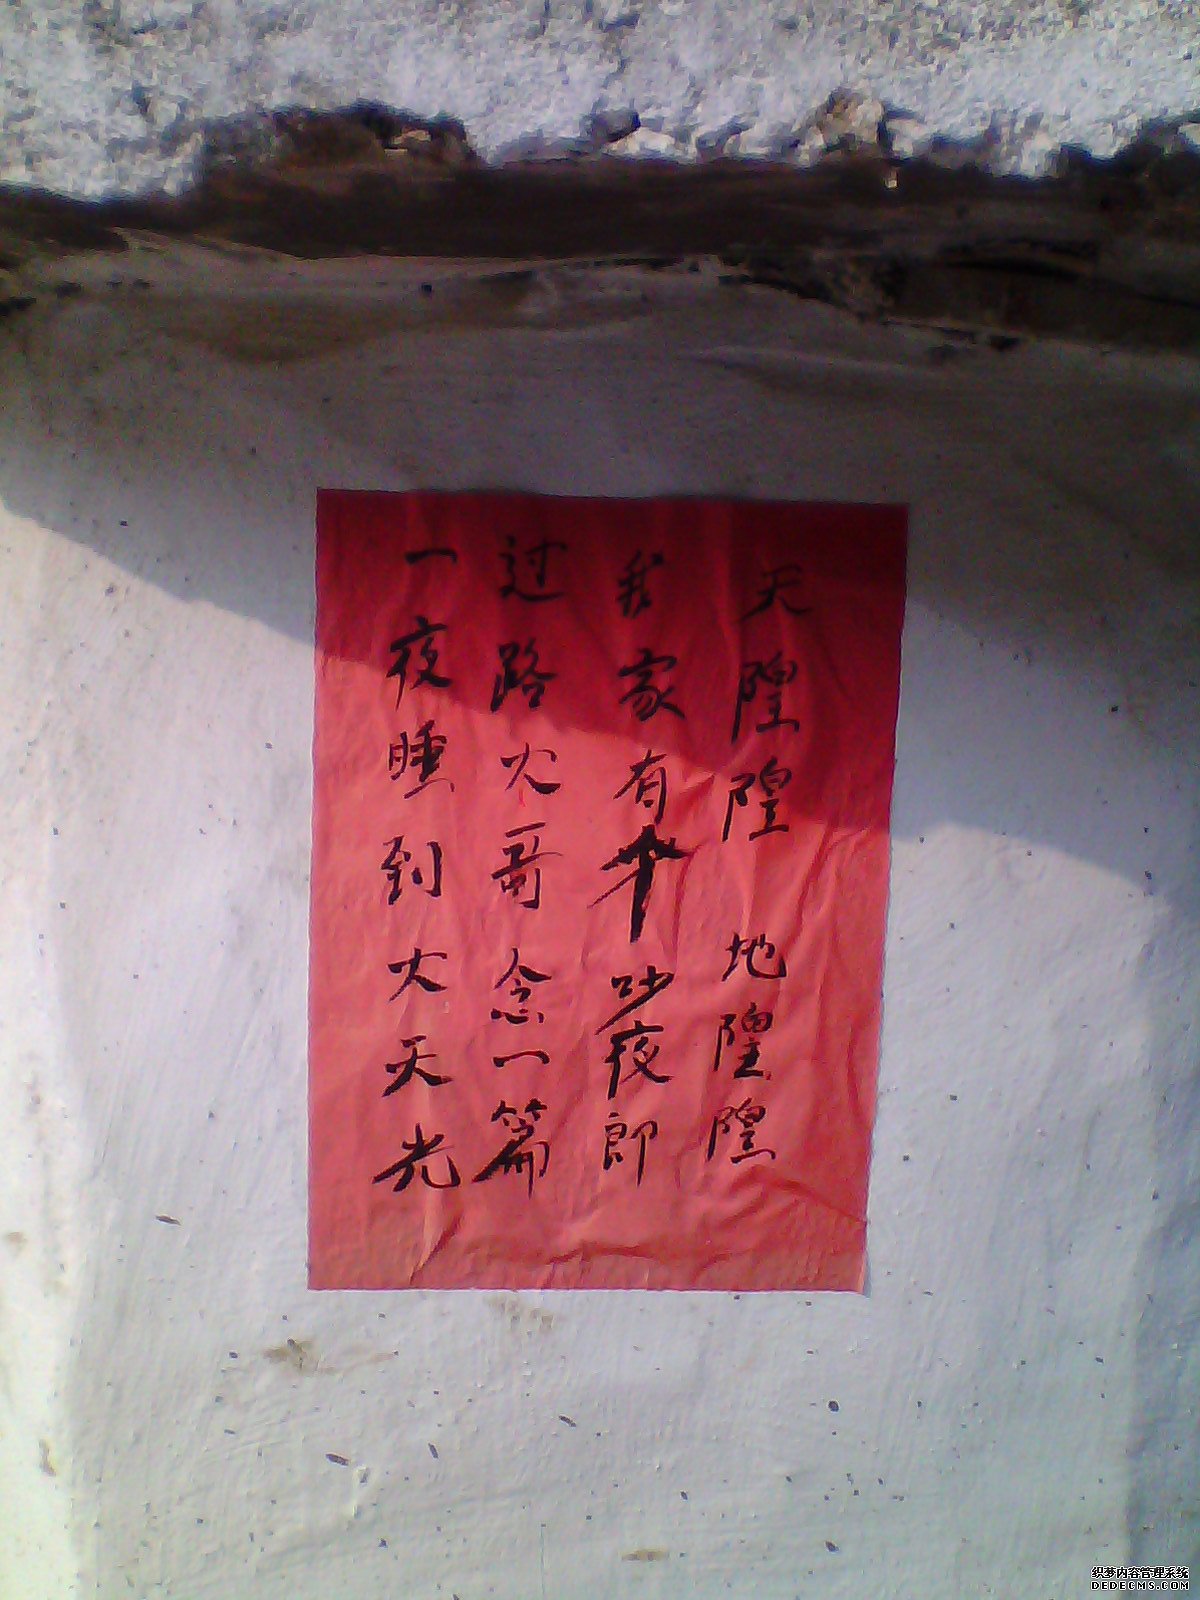 天隍隍 地隍隍
我家有个吵夜郎
过路大哥念一篇
一夜睡到大天光
织梦内容管理系统
DEDECMS.COM